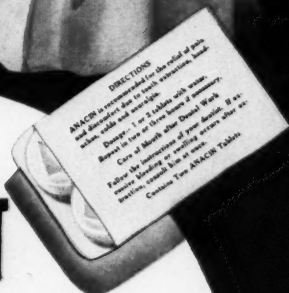 DIRECTIONS
ANACIN is recommended for the relief of pain
and discomfort due to tooth extraction, head-
aches, colds and neuralgia.
Dosage-- 1 or 2 tablets with water.
Repeat in two or three hours if necessary.
Care of Mouth after Dental Work
Follow the instructions of your dentist. If ex-
cessive bleeding or swelling occurs after ex-
traction, consult him at once.
Contains Two ANACIN Tablets